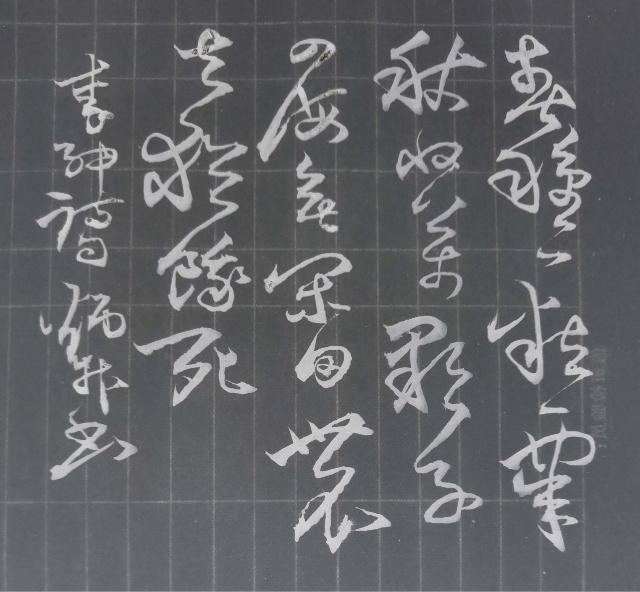 春種一粒粟
秋收萬顆子
四海無閑田農
夫猶餓死
李紳詩炳升書